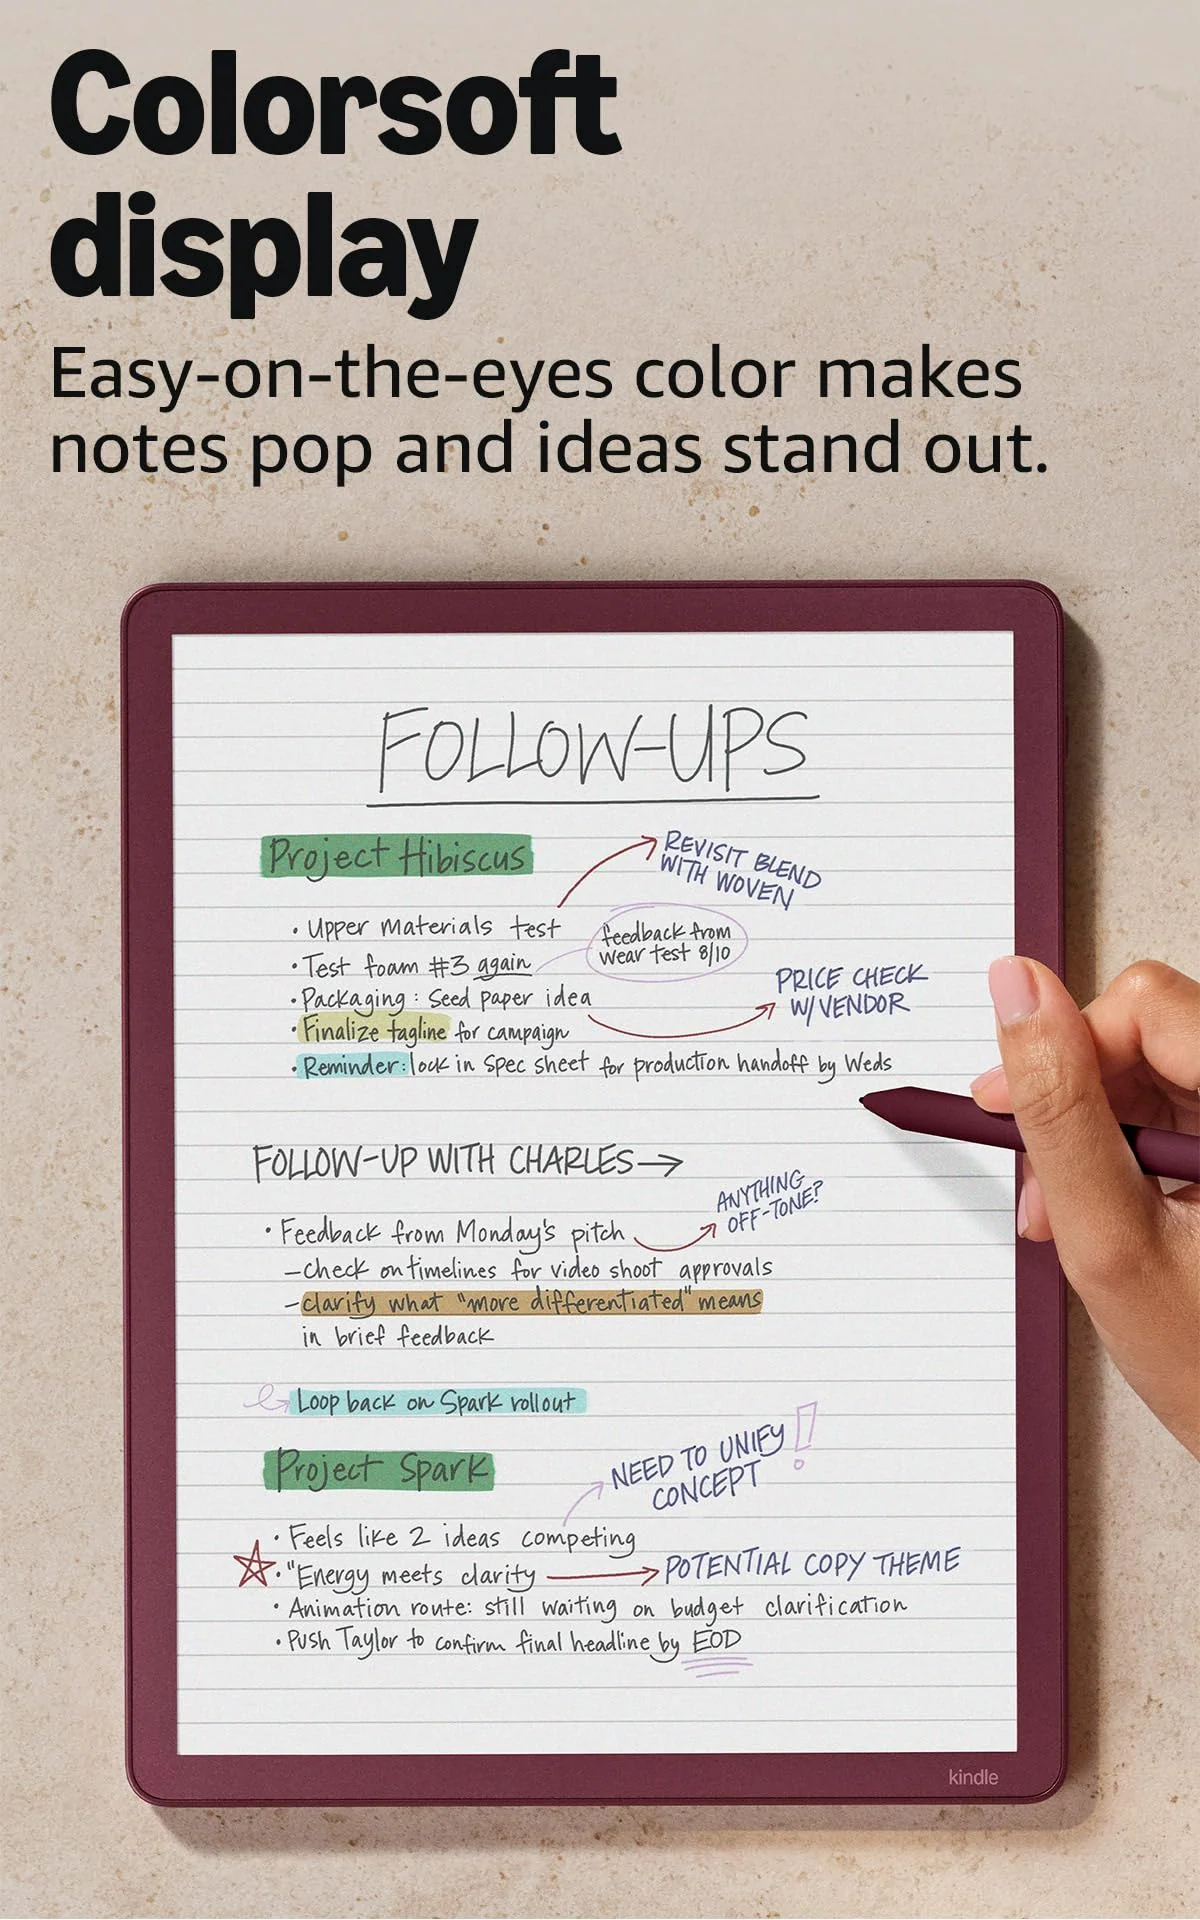 Colorsoft
display
Easy-on-the-eyes color makes
notes pop and ideas stand out.
FOLLOW-UPS
Project Hibiscus
REVISIT BLEND
WITH WOVEN
• Upper materials test
feedback from
wear test 8/10
• Test foam #3 again
• Packaging: Seed paper idea
PRICE CHECK
W/VENDOR
• Finalize tagline for campaign
• Reminder: lock in spec sheet for production handoff by Weds
FOLLOW-UP WITH CHARLES→
ANYTHING
OFF-TONE?
• Feedback from Monday's pitch
– check on timelines for video shoot approvals
– clarify what "more differentiated" means
in brief feedback
Loop back on Spark rollout
Project Spark
NEED TO UNIFY!
CONCEPT
• Feels like 2 ideas competing
• "Energy meets clarity → POTENTIAL COPY THEME
• Animation route: still waiting on budget clarification
• Push Taylor to confirm final headline by EOD
kindle